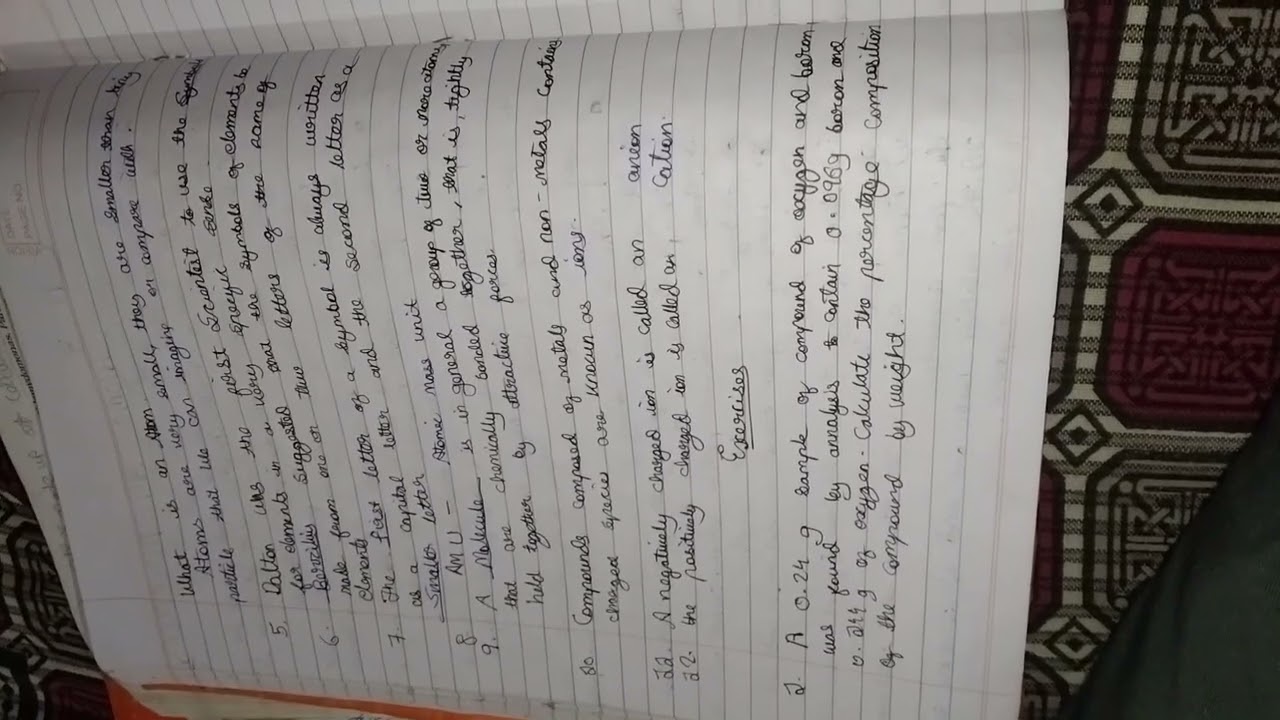 DATE
PAGE NO.
What is an Atom
Atoms are very small, they are smaller than any
particle that we can imagine or compare with.
5. Dalton was the first Scientest to use the
for elements in a very specific sense.
Berzilius suggested that the symbols of elements be
6. made from one or two letters of the name of
elements
7. The first letter of a symbol is always written
as a capital letter and the second letter as a
Smaller letter
8 AMU - Atomic mass unit
9. A Molecule - is in general a group of two or more atoms
that are chemically bonded together, that is, tightly
held together by attractive forces.
10 Compounds composed of metals and non-metals contains
charged species are known as ions.
11. A negatively charged ion is called an anion
12. the positively charged ion is called an cation.
Exercises
1. A 0.24 g sample of compound of oxygen and boron
was found by annalyses to contain 0.096g boron and
0.144 g of oxygen. Calculate the percentage composition
of the compound by weight.